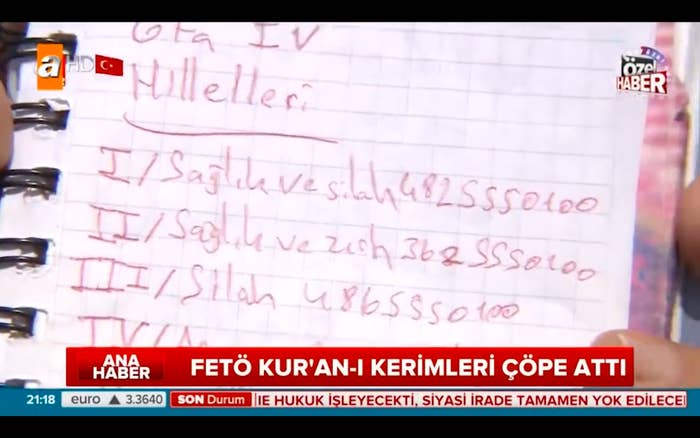 Gta IV
a HD
özel
HABER
Hıllelleri
I/Sağlık ve silah 4825550100
II/Sağlık ve zırh 3625550100
III/Silah 4865550100
IV/
ANA HABER
FETÖ KUR'AN-I KERİMLERİ ÇÖPE ATTI
21:18 euro ▲ 3.3640 SON Durum E HUKUK İŞLEYECEKTİ, SİYASİ İRADE TAMAMEN YOK EDİLECE